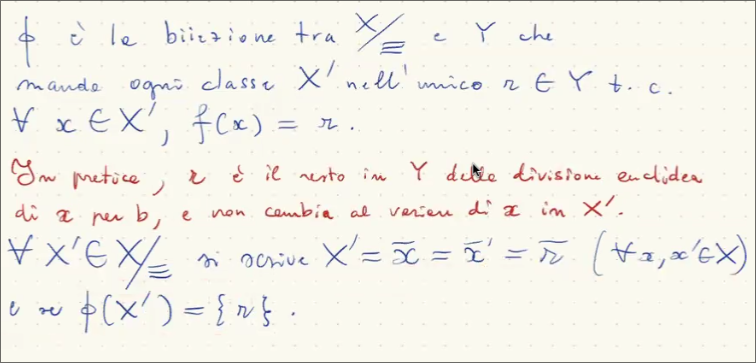 ϕ è la biiezione tra X/≡ e Y che
manda ogni classe X' nell'unico r ∈ Y t. c.
∀ x ∈ X', f(x) = r.
In pratica, r è il resto in Y della divisione euclidea
di x per b, e non cambia al variare di x in X'.
∀ X' ∈ X/≡ si scrive X' = x̅ = x̅' = r̅ (∀ x, x' ∈ X)
e se ϕ(X') = {r}.